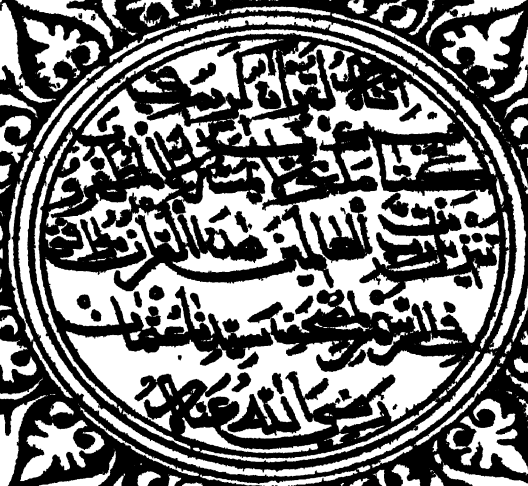 انه لقرآن كريم في
كتاب مكنون لا يمسه الا المطهرون
تنزيل من رب العالمين هذا القرآن مطابق
في الرسم لمصحف سيدنا عثمان
رضى الله عنه